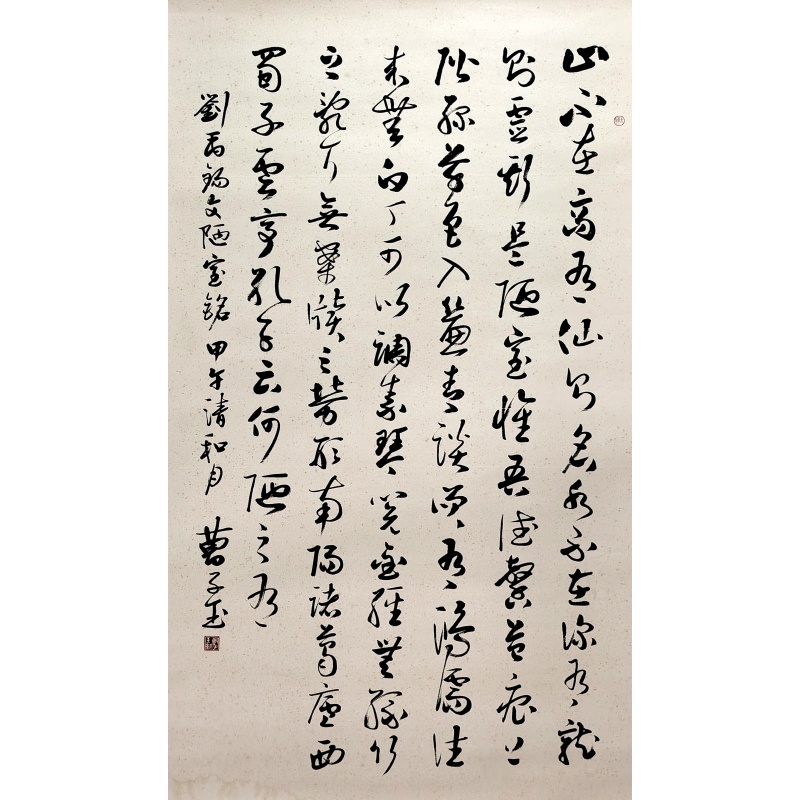 山不在高有仙則名水不在深有龍
則靈斯是陋室惟吾德馨苔痕上
階綠草色入簾青談笑有鴻儒往
來無白丁可以調素琴閱金經無絲竹
之亂耳無案牘之勞形南陽諸葛廬西
蜀子雲亭孔子云何陋之有
劉禹錫文陋室銘 甲午清和月 曹子玉